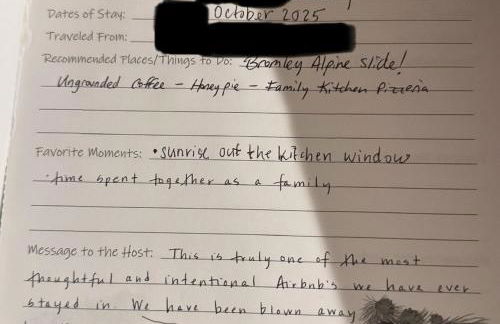 Dates of Stay: October 2025
Traveled From:
Recommended Places/Things to Do: Bromley Alpine Slide!
Ungrounded Coffee - Honeypie - Family Kitchen Pizzeria
Favorite Moments: • sunrise out the kitchen window
· time spent together as a family
Message to the Host: This is truly one of the most
thoughtful and intentional Airbnb's we have ever
stayed in. We have been blown away